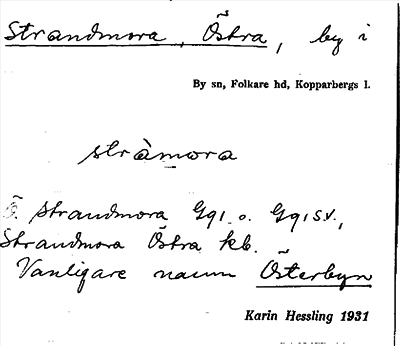 Strandmora, Östra, by i
By sn, Folkare hd, Kopparbergs l.
stràmora
Ö. Strandmora Gq1 o. Gq1SV.,
Strandmora Östra kb.
Vanligare namn Österbyn
Karin Hessling 1931